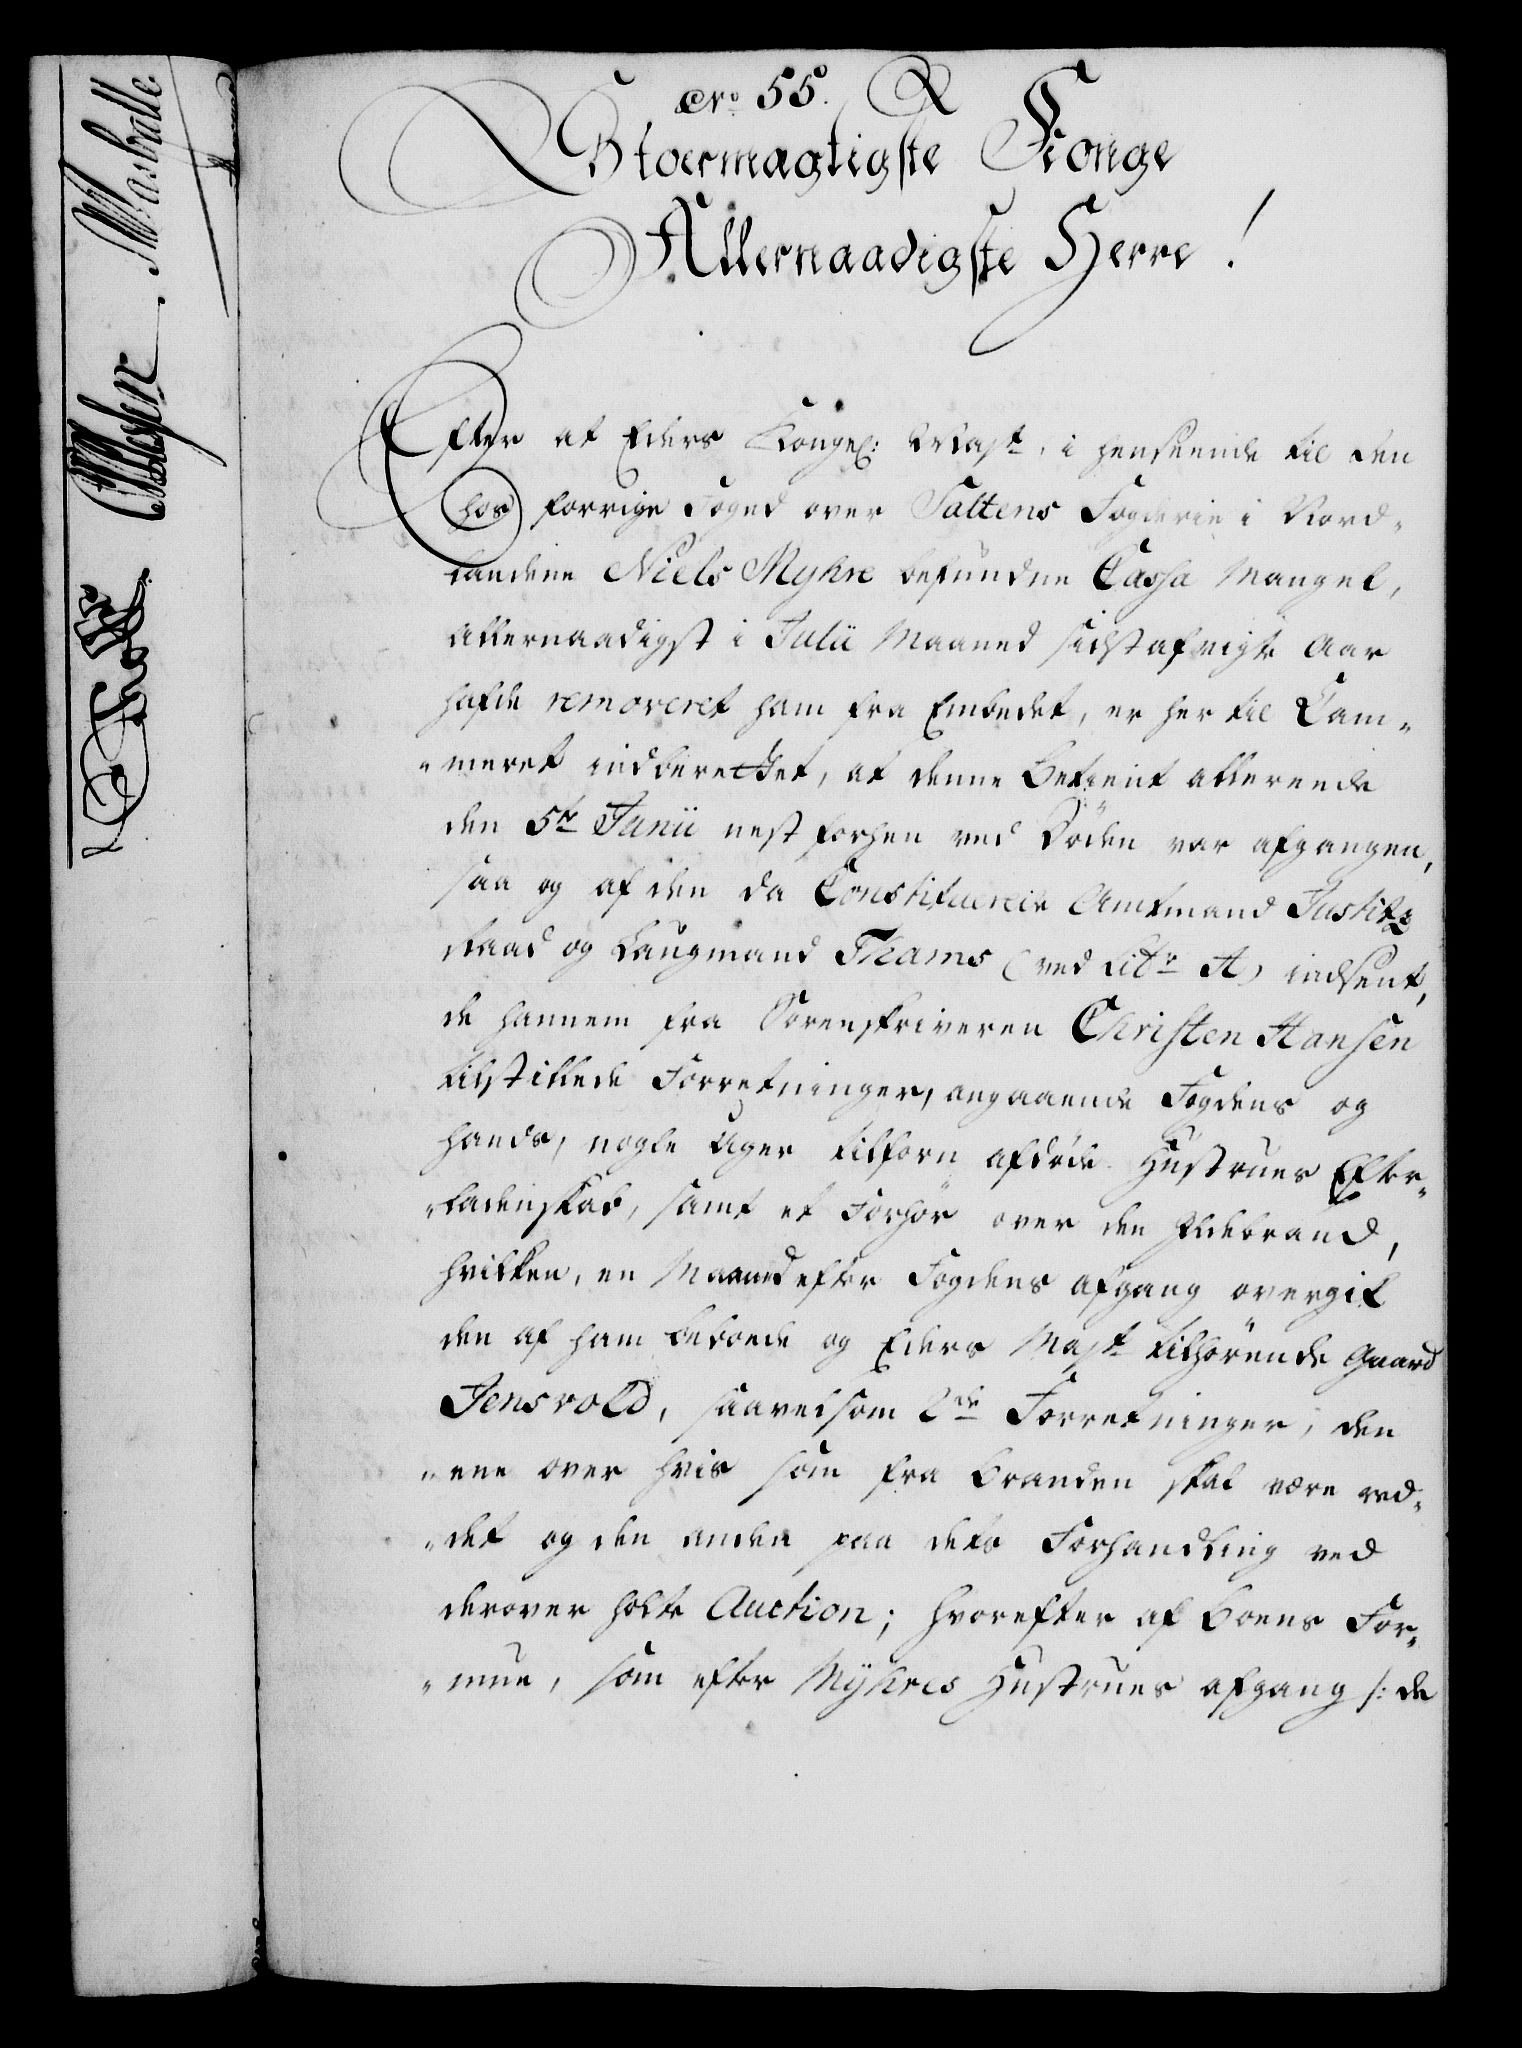 No. 55.
Stoermægtigste Konge
Allernaadigste Herre!
Efter at Eders Kongel: Mayt, i henseende til den
hos forrige Foged over Saltens Fogderie i Nord-
landene Niels Myhre befundne Cassa Mangel,
allernaadigst i Julii Maaned sidstafvigte Aar
hafde removeret ham fra Embedet, er her til Cam-
"meret indberettet, at denne Betient allereede
den 5te Junii nest forhen ved Døden var afgangen,
saa og af den da Constituerede Amtmand Justitz
Raad og Laugmand Thams (ved Litr A) indsent,
de hannem fra Sorenskriveren Christen Hansen
tilstillede Forretninger, angaaende Fogdens og
hands, nogle Uger tilforn afdøde Hustrues Efter-
"ladenskab, samt et Forhør over den Ildebrand,
hvilken, en Maaned efter Fogdens afgang overgik
den af ham beboede og Eders Mayt tilhørende Gaard
Jensvold, saavelsom 2de Forretninger, den
"ene over hvis som fra branden skal være red-
"det og den anden paa dets Forhandling ved
derover holte Auction; hvorefter af Boens For-
"mue, som efter Myhres Hustrues afgang /: de